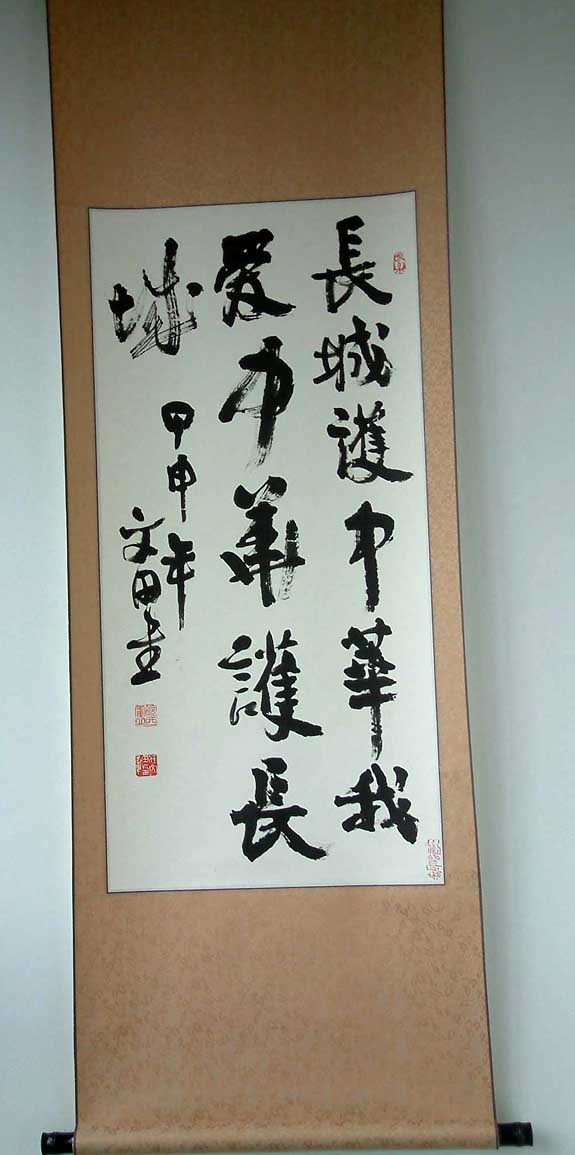 長城護中華我
愛中華護長
城
甲申年
文田